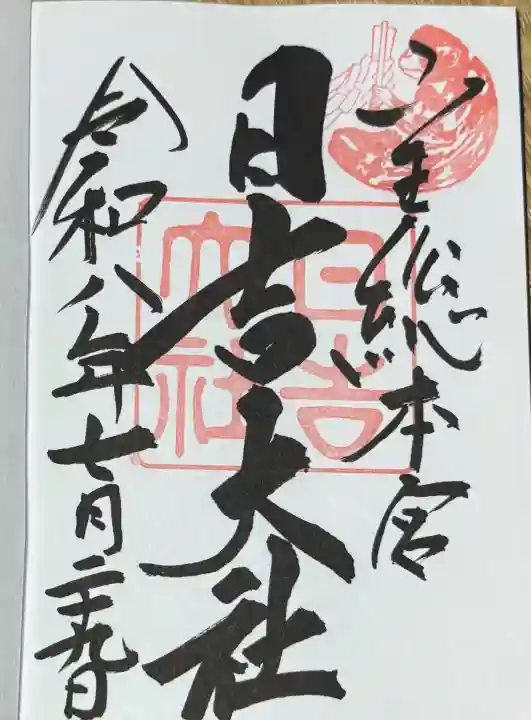 山王総本宮
日吉大社
令和八年七月二十九日
日吉
大社